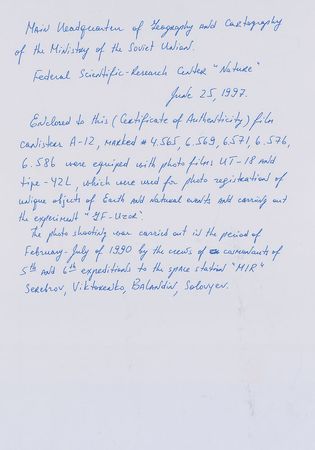 Main Headquarters of Geography and Cartography
of the Ministry of the Soviet Union.
Federal Scientific-Research Center "Nature"
June 25, 1997.
Enclosed to this (Certificate of Authenticity) film
canisters A-12, marked # 4.565, 6.569, 6.571, 6.576,
6.586 were equiped with photo films UT-18 and
tipe-42L, which were used for photo registration of
unique objects of Earth and Natural events and carring out
the experiment "GF-Uzor".
The photo shooting was carried out in the period of
February-July of 1990 by the crews of cosmonauts of
5th and 6th expeditions to the space station "MIR"
Serebrov, Viktorenko, Balandin, Solovyev.